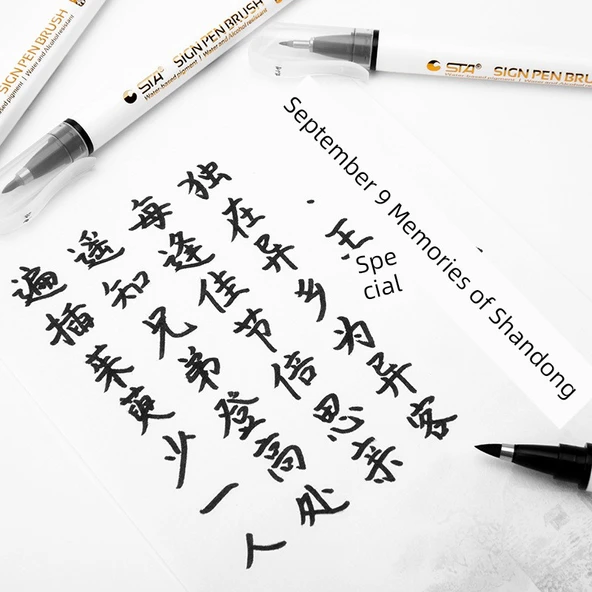 SIGN PEN BRUSH
pigment | Water and Alcohol resistant
STA® SIGN PEN BRUSH
Water based pigment | Water and Alcohol resistant
STA® SIGN PEN BRUS
September 9 Memories of Shandong
王
Spe
cial
独在异乡为异客
每逢佳节倍思亲
遥知兄弟登高处
遍插茱萸少一人